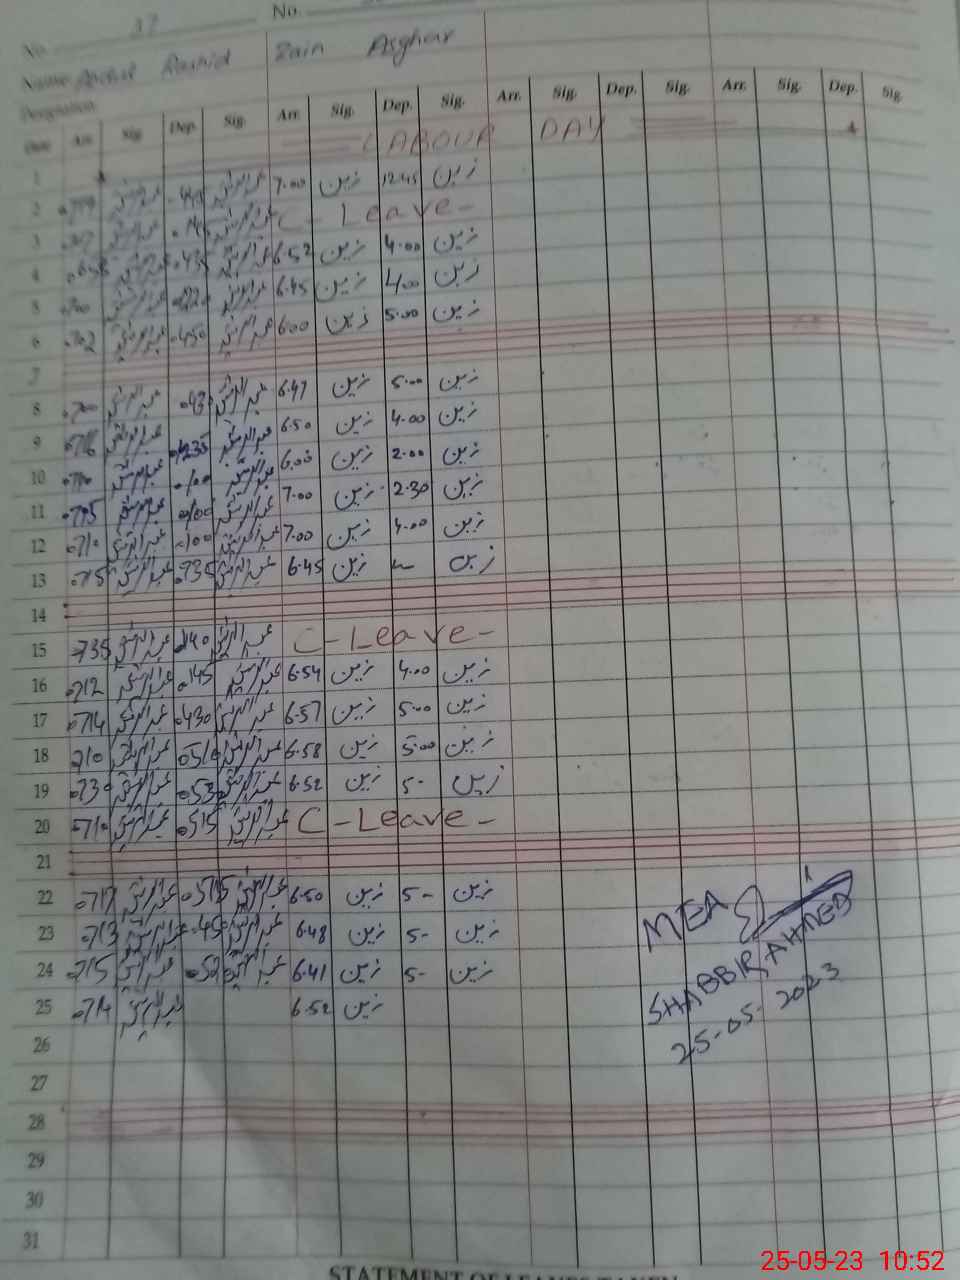 No. 37 No.
Name Abdul Rashid Zain Asghar
Designation
Date Arr. Sig. Dep. Sig. Arr. Sig. Dep. Sig. Arr. Sig. Dep. Sig. Arr. Sig. Dep. Sig.
1 LABOUR DAY
2 7.00 زین 12.45 زین
3 C-Leave-
4 6.52 زین 4.00 زین
5 700 عبدالرشید عبدالرشید 6.45 زین 400 زین
6 0702 عبدالرشید 0450 عبدالرشید 6.00 زین 5.00 زین
7
8 0700 عبدالرشید عبدالرشید 6.47 زین 5.00 زین
9 عبدالرشید 0435 عبدالرشید 6.50 زین 4.00 زین
10 0710 عبدالرشید 0100 عبدالرشید 6.00 زین 2.00 زین
11 0715 عبدالرشید 0100 عبدالرشید 7.00 زین 2.30 زین
12 0710 عبدالرشید 0100 عبدالرشید 7.00 زین 4.00 زین
13 0715 عبدالرشید 0735 عبدالرشید 6.45 زین زین
14
15 0735 عبدالرشید 0140 عبدالرشید C-Leave-
16 0712 عبدالرشید 0145 عبدالرشید 6.54 زین 4.00 زین
17 0714 عبدالرشید 0430 عبدالرشید 6.57 زین 5.00 زین
18 0710 عبدالرشید 0510 عبدالرشید 6.58 زین 5.00 زین
19 0730 عبدالرشید 0530 عبدالرشید 6.52 زین 5- زین
20 0710 عبدالرشید 0515 عبدالرشید C-Leave-
21
22 0717 عبدالرشید 0515 عبدالرشید 6.50 زین 5- زین
23 0713 عبدالرشید 045 عبدالرشید 6.48 زین 5- زین
24 0715 عبدالرشید 0520 عبدالرشید 6.41 زین 5- زین
25 0714 عبدالرشید 6.52 زین
MEA
SHABBIR AHMED
25-05-2023
26
27
28
29
30
31
STATEMENT OF LEAVES TAKEN
25-05-23 10:52